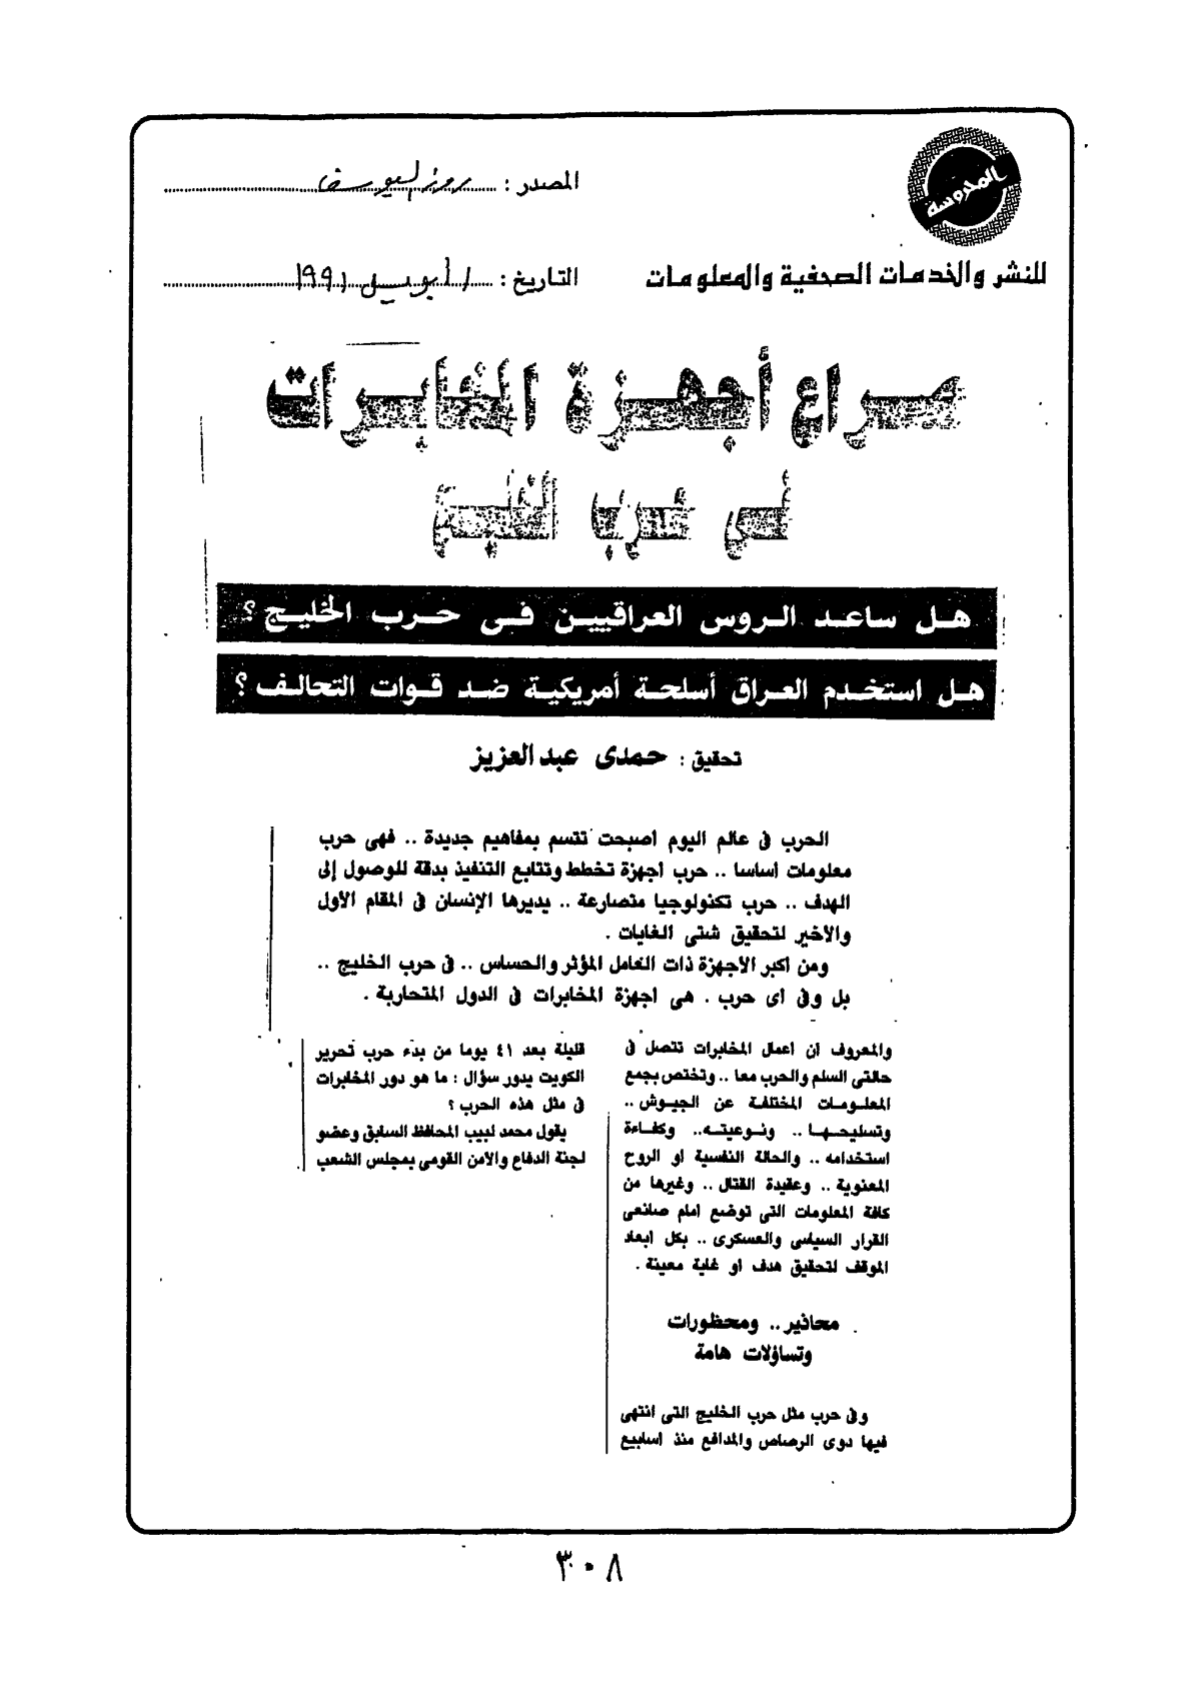 المحروسة
للنشر والخدمات الصحفية والمعلومات
المصدر : روز اليوسف
التاريخ : ١٩٩١
صراع أجهزة المخابرات
فى حرب الخليج
هل ساعد الروس العراقيين فى حرب الخليج ؟
هل استخدم العراق أسلحة أمريكية ضد قوات التحالف ؟
تحقيق : حمدى عبد العزيز
الحرب فى عالم اليوم اصبحت تتسم بمفاهيم جديدة .. فهى حرب
معلومات اساسا .. حرب اجهزة تخطط وتتابع التنفيذ بدقة للوصول إلى
الهدف .. حرب تكنولوجيا متصارعة .. يديرها الإنسان فى المقام الأول
والاخير لتحقيق شتى الغايات .
ومن اكبر الاجهزة ذات العامل المؤثر والحساس .. فى حرب الخليج ..
بل وفى اى حرب . هى اجهزة المخابرات فى الدول المتحاربة .
والمعروف ان اعمال المخابرات تتصل فى
حالتى السلم والحرب معا .. وتختص بجمع
المعلومات المختلفة عن الجيوش ..
وتسليحها .. ونوعيته .. وكفاءة
استخدامه .. والحالة النفسية او الروح
المعنوية .. وعقيدة القتال .. وغيرها من
كافة المعلومات التى توضع امام صانعى
القرار السياسى والعسكرى .. بكل ابعاد
الموقف لتحقيق هدف او غاية معينة .
محاذير .. ومحظورات
وتساؤلات هامة
وفى حرب مثل حرب الخليج التى انتهى
فيها دوى الرصاص والمدافع منذ اسابيع
قليلة بعد ٤١ يوما من بدء حرب تحرير
الكويت يدور سؤال : ما هو دور المخابرات
فى مثل هذه الحرب ؟
يقول محمد لبيب المحافظ السابق وعضو
لجنة الدفاع والامن القومى بمجلس الشعب
٣٠٨